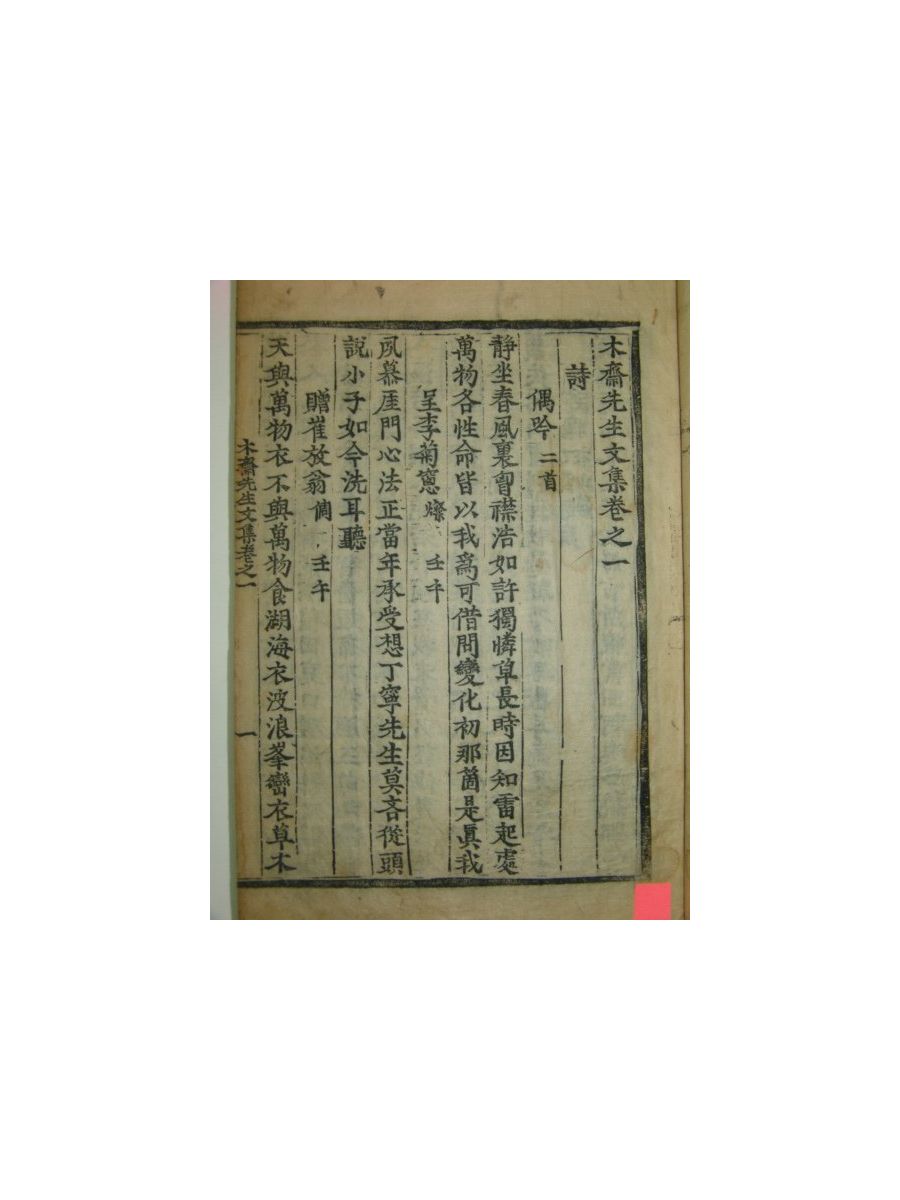 木齋先生文集卷之一
詩
偶吟 二首
靜坐春風裏胷襟浩如許獨憐草長時因知雷起處
萬物各性命皆以我爲可借問變化初那箇是眞我
呈李菊窻 燦 壬午
夙慕厓門心法正當年承受想丁寧先生莫吝從頭
說小子如今洗耳聽
贈崔放翁 倜 壬午
天與萬物衣不與萬物食湖海衣波浪峯巒衣草木
木齋先生文集卷之一 一